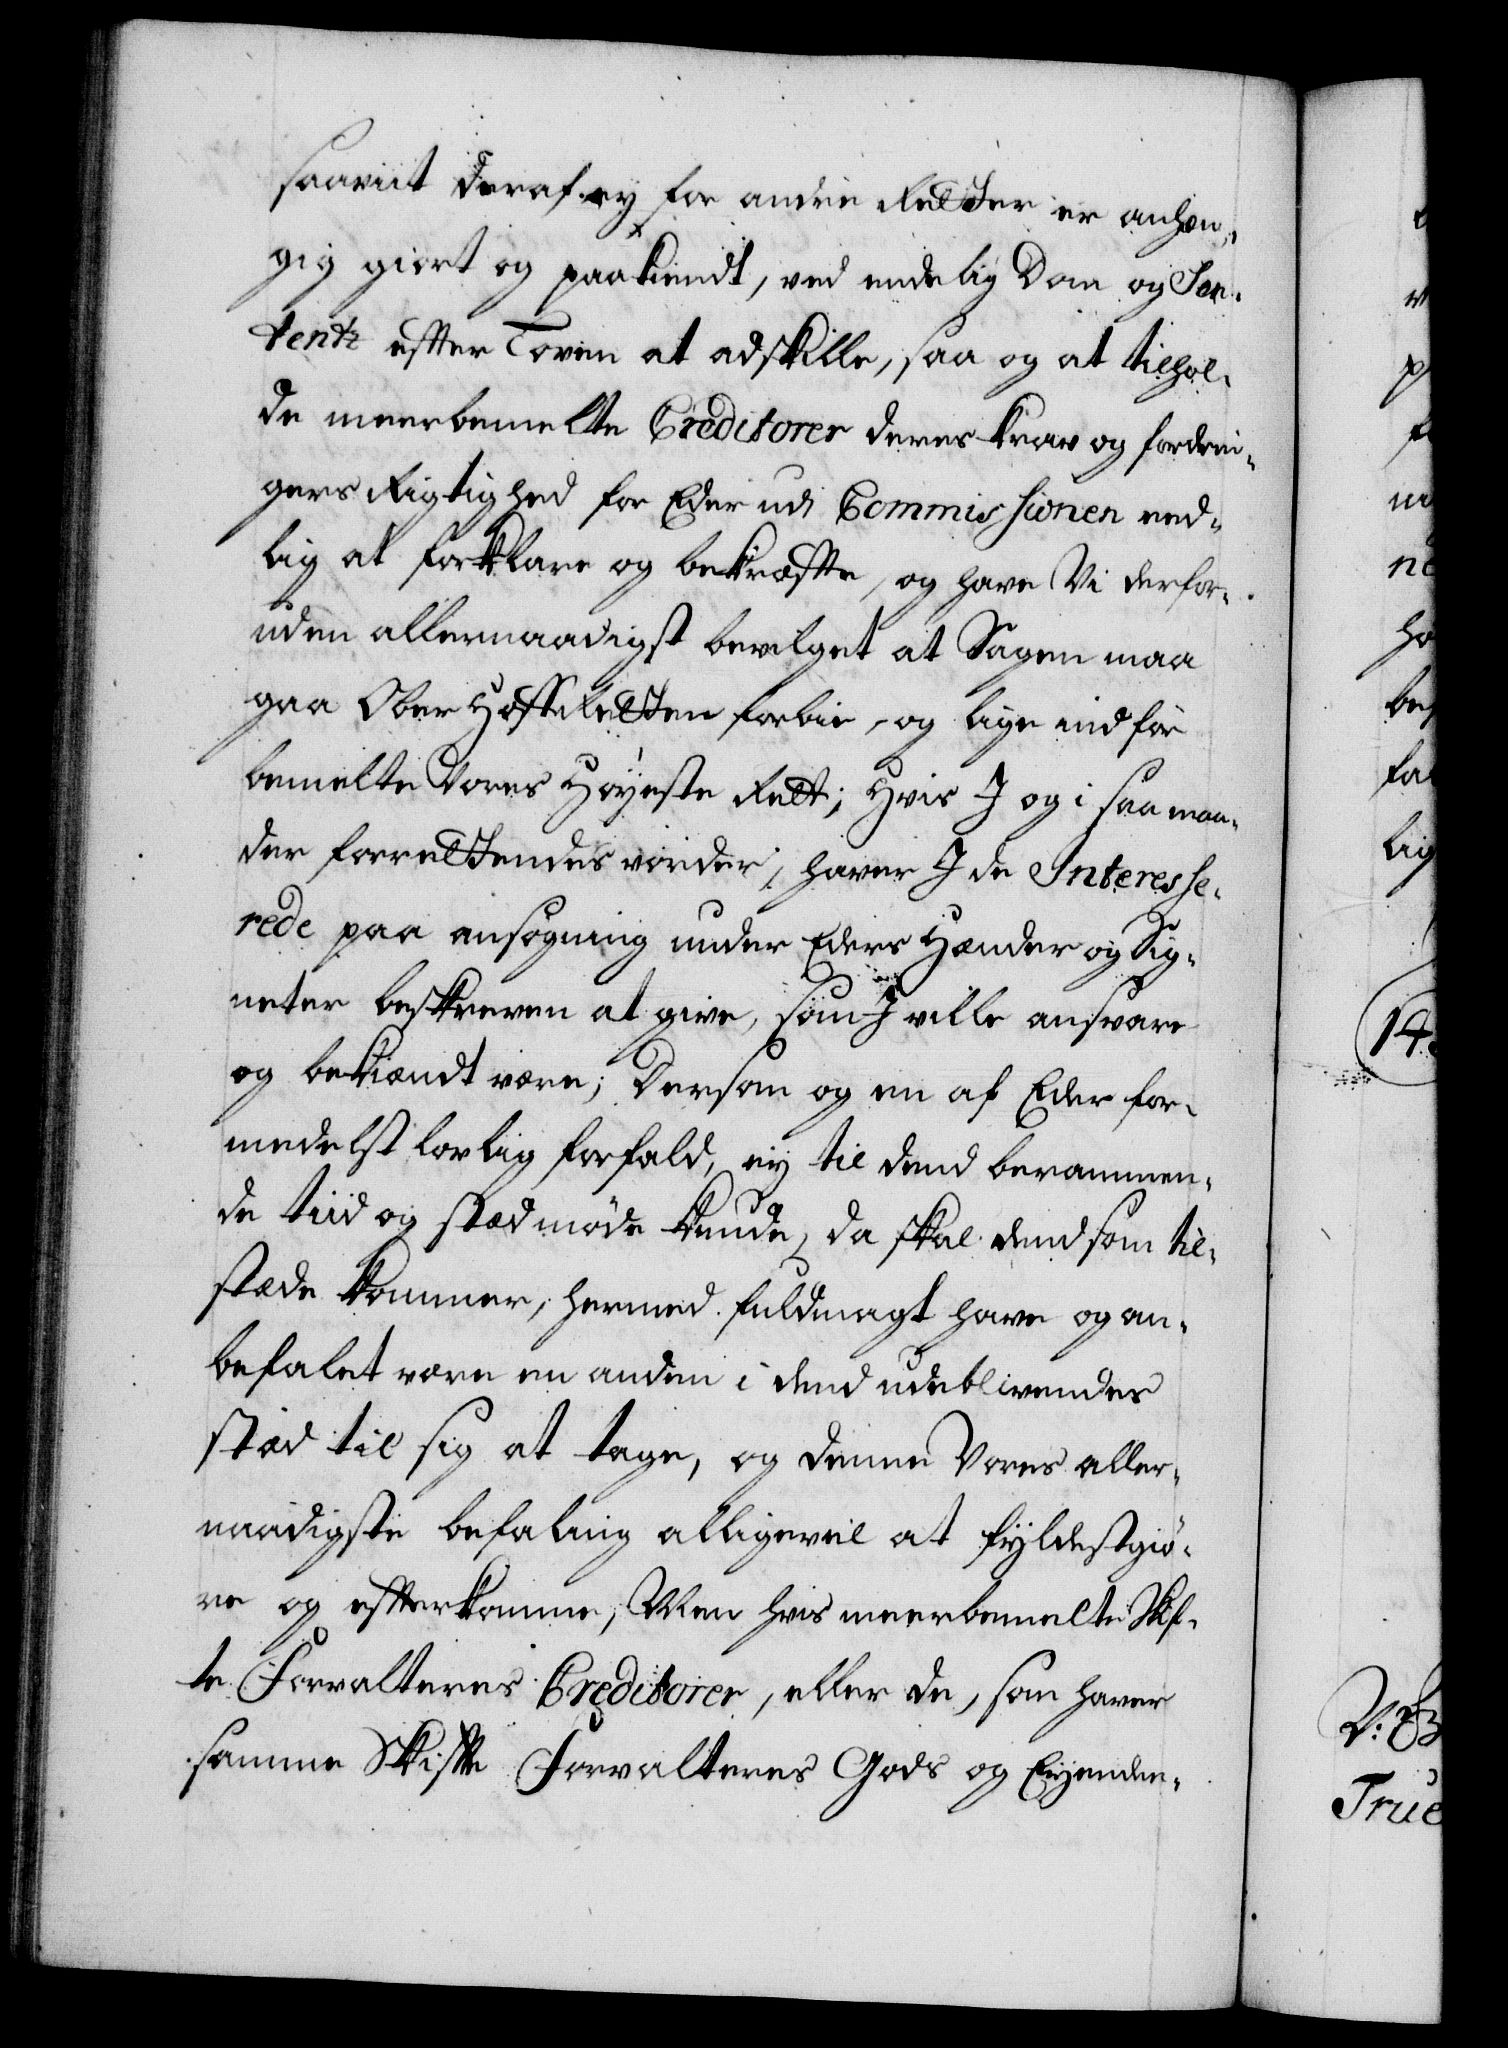 saaviit deraf ey for andre Retter er anhæn-
gig giort og paakiendt, ved endelig Dom og Sen-
tentz effter Loven at adskille, saa og at tilhol-
de meerbemelte Creditorer deres krav og fordrin-
gers Rigtighed for Eder udi Commissionen eed-
lig at forklare og bekræffte, og have Vi derfor-
uden allernaadigst bevilget at Sagen maa
gaa Ober Hoff Retten forbie, og lige ind for
bemelte Vores Høyeste Rett; Hvis J og i saa maa-
der forrettendes vorder, haver J de Interesse-
rede paa ansøgning under Eders Hænder og Sig-
neter beskreven at give, som J ville ansvare
og bekiændt være; Dersom og en af Eder for-
medelst lovlig forfald, ey til dend berammen-
de tiid og stæd møde kunde, da skal dend som til-
stæde kommer, hermed fuldmagt have og an-
befalet være en anden i dend udeblivendes
stæd til sig at tage, og denne Vores aller-
naadigste befaling alligevel at fyldestgiø-
re og effterkomme, Men hvis meerbemelte Skif-
te Forvalteres Creditorer, eller de, som haver
samme Skiffte Forvalteres Gods og Eyende-
14
V:
True